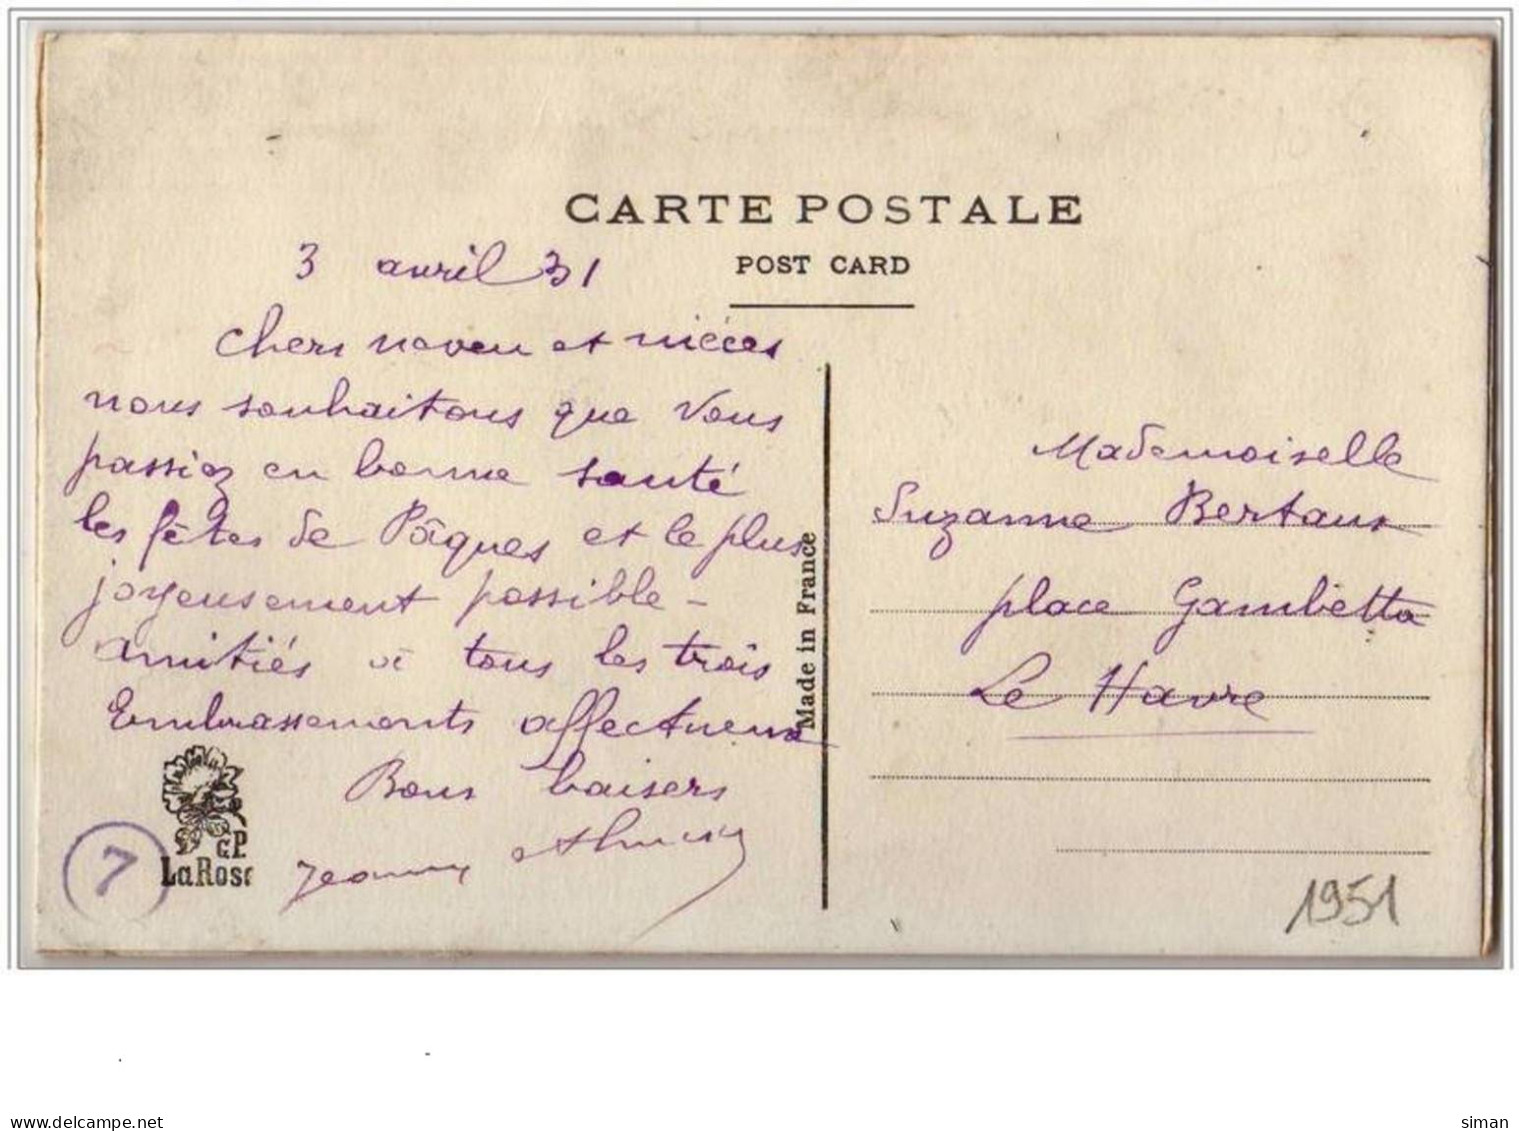 CARTE POSTALE
POST CARD
3 avril 31
Chers neveu et nièces
nous souhaitons que vous
passiez en bonne santé
les fêtes de Pâques et le plus
joyeusement possible -
amitiés à tous les trois
Embrassements affectueux
Bons baisers
Jeanne
GP
La Rose
7
Made in France
Mademoiselle
Suzanne Bertaux
place Gambetta
Le Havre
1951
www.delcampe.net
siman